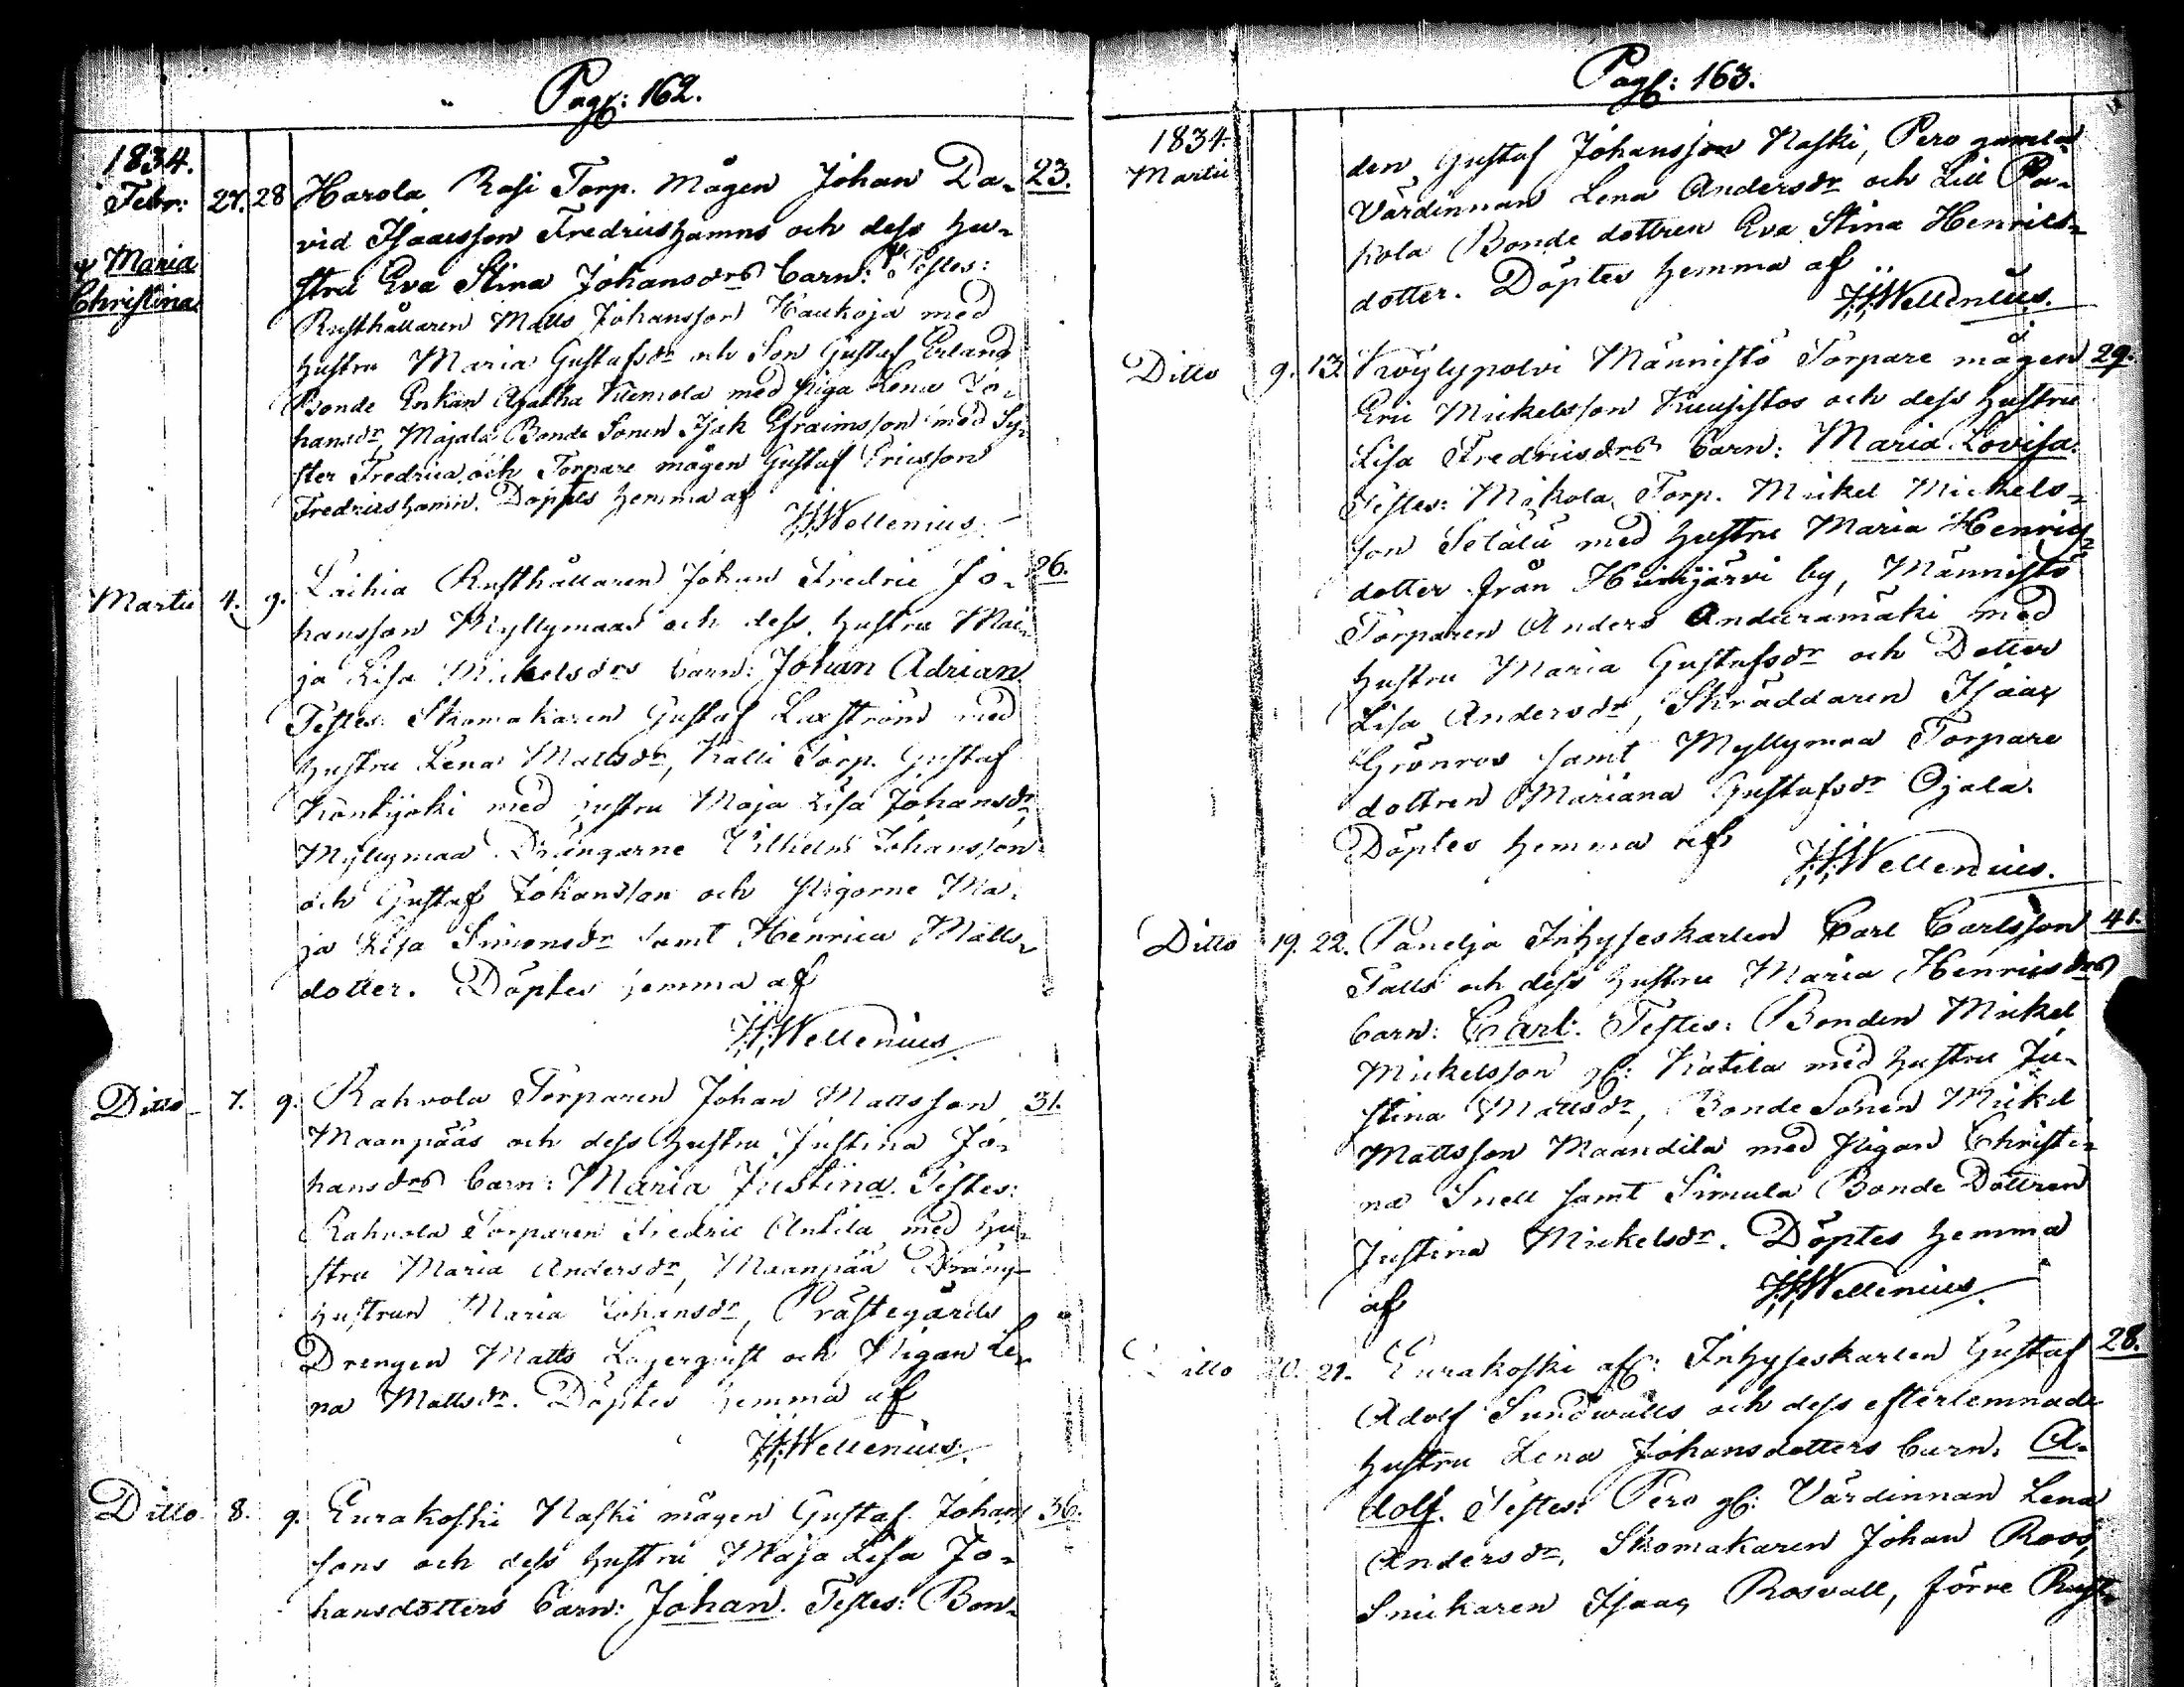 Pag: 162.
1834.
Febr: 27. 28 Harola Rasi Torp. mågen Johan Da- 23.
vid Isaacsson Fredricshamns och dess hu-
Maria
Christina
stru Eva Stina Johansdrs barn: Testes:
Rusthållaren Matts Johansson Haukoja med
hustru Maria Gustafsdr och Son Gustaf Erland
Bonde Enkan Agatha med piga Lena Jo-
hansdr, Majala Bonde Sonen Isak Efraimsson med Sy-
ster Fredrica och Torpare mågen Gustaf Ericsson
Fredricshamn. Döptes hemma af
Wellenius.
Martii 4. 9. Laihia Rusthållaren Johan Fredric Jo- 26.
hansson Myllymaas och dess hustru Mai-
ja Lisa Mickelsdrs barn: Johan Adrian.
Testes: Skomakaren Gustaf Luxström med
hustru Lena Mattsdr, Kalli Torp. Gustaf
Köntijoki med hustru Maja Lisa Johansdr,
Myllymaa Drängarne Vilhelm Johansson
och Gustaf Johansson och pigorne Ma-
ja Lisa Simonsdr samt Henrica Matts-
dotter. Döptes hemma af
Wellenius.
Ditto 7. 9. Rahvola Torparen Johan Mattsson 31.
Maanpääs och dess hustru Justina Jo-
hansdrs barn: Maria Justina. Testes:
Rahvola Torparen Fredric Antila med hu-
stru Maria Andersdr, Maanpää Dräng-
hustrun Maria Johansdr, Prästegårds
Drengen Matts Lagerqvist och Pigan Le-
na Mattsdr. Döptes hemma af
Wellenius.
Ditto 8. 9. Eurakoski Naski mågen Gustaf Johans 36.
sons och dess hustru Maja Lisa Jo-
hansdotters barn: Johan. Testes: Bon-
Pag: 163.
1834.
Martii
den Gustaf Johansson Naski, Pero gamla
Värdinnan Lena Andersdr och Lill Pa-
kola Bonde dottren Eva Stina Henrics-
dotter. Döptes hemma af
Wellenius.
Ditto 9. 13. Köylypolvi Männistö Torpare mågen 29.
Eric Mickelsson Kuusistos och dess hustru
Lisa Fredricsdrs barn: Maria Lovisa.
Testes: Mäkola Torp. Mickel Mickels-
son Setälä med hustru Maria Henrics-
dotter från Hinnijärvi by, Männistö
Torparen Anders Anduramäki med
hustru Maria Gustafsdr och Dotter
Lisa Andersdr, Skräddaren Isaac
Grönroos samt Myllymaa Torpare
dottren Mariana Gustafsdr Ojala.
Döptes hemma af
Wellenius.
Ditto 19. 22. Panelja Inhyseskarlen Carl Carlsson 41.
Talls och dess hustru Maria Henricsdrs
barn: Carl. Testes: Bonden Mickel
Mickelsson gl: Katila med hustru Ju-
stina Mattsdr, Bonde Sonen Mickel
Mattsson Maandila med pigan Christi-
na Snell samt Simula Bonde Dottren
Justina Mickelsdr. Döptes hemma
af
Wellenius
Ditto 20. 21. Eurakoski afl: Inhyseskarlen Gustaf 28.
Adolf Sundwalls och dess efterlemnade
hustru Lena Johansdotters barn. A-
dolf. Testes: Pero gl: Värdinnan Lena
Andersdr, Skomakaren Johan Roos,
Snickaren Isaac Rosvall, förre Rust-